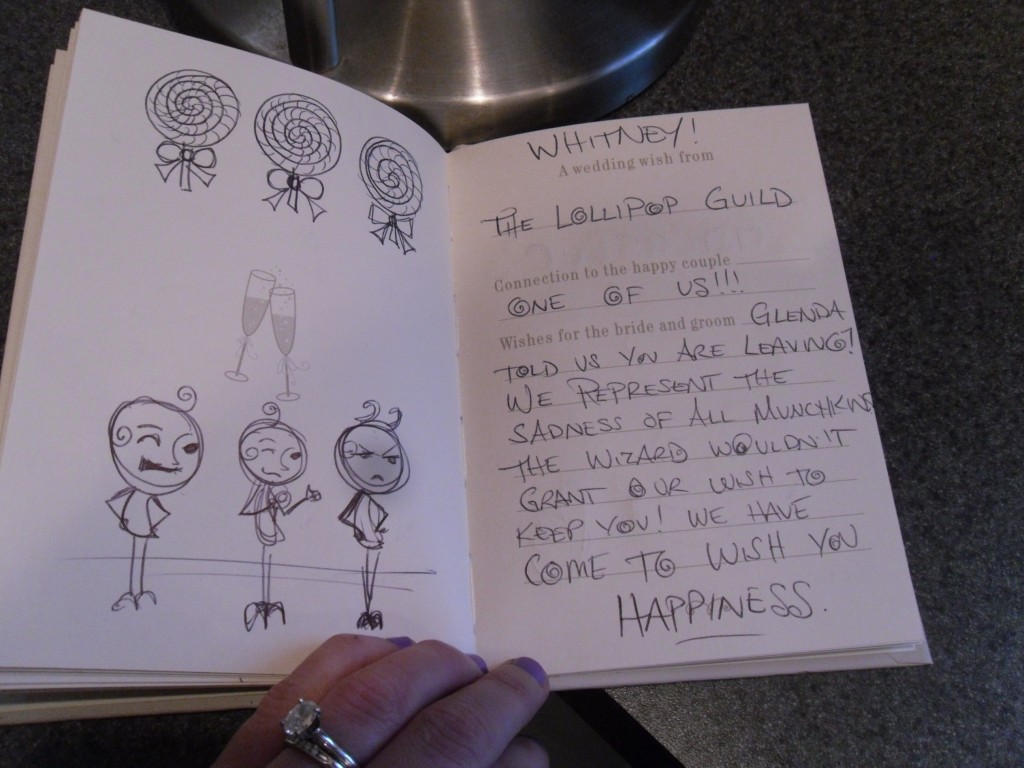 WHITNEY!
A wedding wish from
THE LOLLIPOP GUILD
Connection to the happy couple
ONE OF US!!!
Wishes for the bride and groom GLENDA
TOLD US YOU ARE LEAVING!
WE REPRESENT THE
SADNESS OF ALL MUNCHKINS
THE WIZARD WOULDN'T
GRANT OUR WISH TO
KEEP YOU! WE HAVE
COME TO WISH YOU
HAPPINESS.